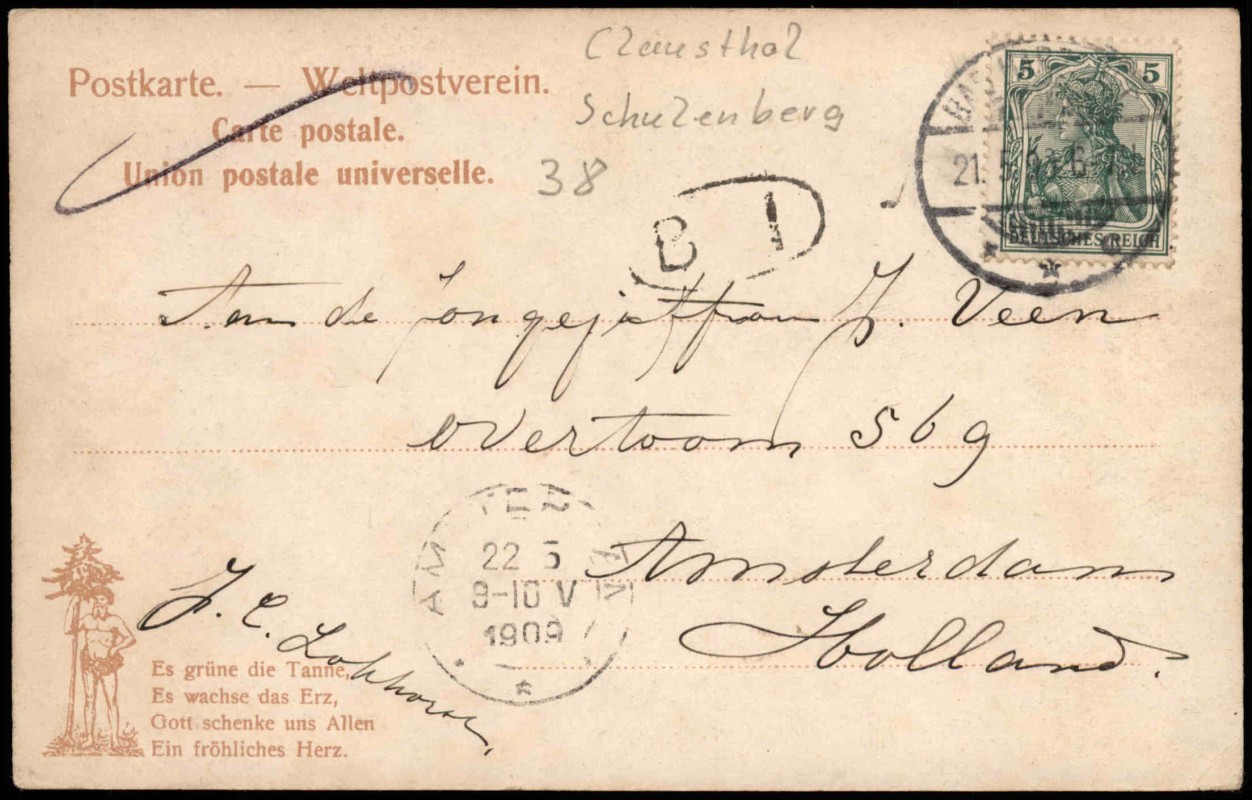 Clausthal
Schulenberg
Postkarte. — Weltpostverein.
Carte postale.
Union postale universelle.
38
B 1
5 5
21. 5. 09. 6-7
DEUTSCHES REICH
Aan de Jongejuffrouw J. Veen
Overtoom 569
Amsterdam
Holland.
AMSTERDAM
22 5
9-10 V
1909
J. C. Lokhorst,
Es grüne die Tanne,
Es wachse das Erz,
Gott schenke uns Allen
Ein fröhliches Herz.